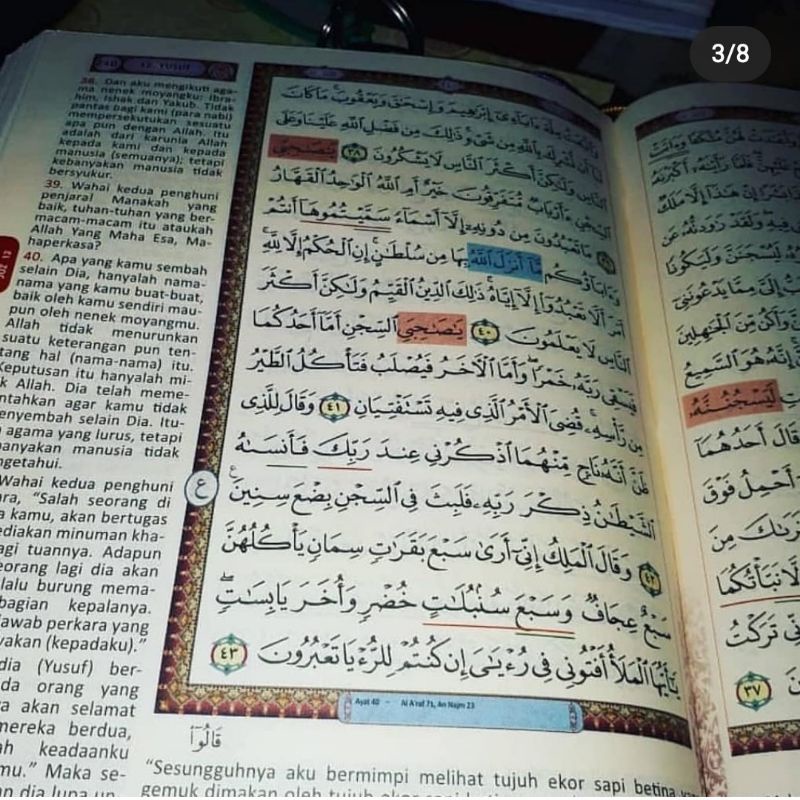 3/8
240
12. YUSUF
38. Dan aku mengikuti aga-
ma nenek moyangku: Ibra-
him, Ishak dan Yakub. Tidak
pantas bagi kami (para nabi)
mempersekutukan sesuatu
apa pun dengan Allah. Itu
adalah dari karunia Allah
kepada kami dan kepada
manusia (semuanya); tetapi
kebanyakan manusia tidak
bersyukur.
39. Wahai kedua penghuni
penjara! Manakah yang
baik, tuhan-tuhan yang ber-
macam-macam itu ataukah
Allah Yang Maha Esa, Ma-
haperkasa?
40. Apa yang kamu sembah
selain Dia, hanyalah nama-
nama yang kamu buat-buat,
baik oleh kamu sendiri mau-
pun oleh nenek moyangmu.
Allah tidak menurunkan
suatu keterangan pun ten-
tang hal (nama-nama) itu.
Keputusan itu hanyalah mi-
k Allah. Dia telah meme-
ntahkan agar kamu tidak
enyembah selain Dia. Itu-
agama yang lurus, tetapi
anyakan manusia tidak
ngetahui.
Wahai kedua penghuni
ara, "Salah seorang di
a kamu, akan bertugas
ediakan minuman kha-
agi tuannya. Adapun
eorang lagi dia akan
lalu burung mema-
bagian kepalanya.
awab perkara yang
yakan (kepadaku)."
dia (Yusuf) ber-
da orang yang
a akan selamat
mereka berdua,
ah keadaanku
mu." Maka se-
JUZ 12
وَٱتَّبَعْتُ مِلَّةَ ءَابَآءِىٓ إِبْرَٰهِيمَ وَإِسْحَٰقَ وَيَعْقُوبَ ۚ مَا كَانَ
لَنَآ أَن نُّشْرِكَ بِٱللَّهِ مِن شَىْءٍ ۚ ذَٰلِكَ مِن فَضْلِ ٱللَّهِ عَلَيْنَا وَعَلَى
ٱلنَّاسِ وَلَٰكِنَّ أَكْثَرَ ٱلنَّاسِ لَا يَشْكُرُونَ ٣٨ يَٰصَٰحِبَىِ
ٱلسِّجْنِ ءَأَرْبَابٌ مُّتَفَرِّقُونَ خَيْرٌ أَمِ ٱللَّهُ ٱلْوَٰحِدُ ٱلْقَهَّارُ
٣٩ مَا تَعْبُدُونَ مِن دُونِهِۦٓ إِلَّآ أَسْمَآءً سَمَّيْتُمُوهَآ أَنتُمْ
وَءَابَآؤُكُم مَّآ أَنزَلَ ٱللَّهُ بِهَا مِن سُلْطَٰنٍ ۚ إِنِ ٱلْحُكْمُ إِلَّا لِلَّهِ ۚ
أَمَرَ أَلَّا تَعْبُدُوٓا۟ إِلَّآ إِيَّاهُ ۚ ذَٰلِكَ ٱلدِّينُ ٱلْقَيِّمُ وَلَٰكِنَّ أَكْثَرَ
ٱلنَّاسِ لَا يَعْلَمُونَ ٤٠ يَٰصَٰحِبَىِ ٱلسِّجْنِ أَمَّآ أَحَدُكُمَا
فَيَسْقِى رَبَّهُۥ خَمْرًا ۖ وَأَمَّا ٱلْءَاخَرُ فَيُصْلَبُ فَتَأْكُلُ ٱلطَّيْرُ
مِن رَّأْسِهِۦ ۚ قُضِىَ ٱلْأَمْرُ ٱلَّذِى فِيهِ تَسْتَفْتِيَانِ ٤١ وَقَالَ لِلَّذِى
ظَنَّ أَنَّهُۥ نَاجٍ مِّنْهُمَا ٱذْكُرْنِى عِندَ رَبِّكَ فَأَنسَىٰهُ
ٱلشَّيْطَٰنُ ذِكْرَ رَبِّهِۦ فَلَبِثَ فِى ٱلسِّجْنِ بِضْعَ سِنِينَ ع
٤٢ وَقَالَ ٱلْمَلِكُ إِنِّىٓ أَرَىٰ سَبْعَ بَقَرَٰتٍ سِمَانٍ يَأْكُلُهُنَّ
سَبْعٌ عِجَافٌ وَسَبْعَ سُنۢبُلَٰتٍ خُضْرٍ وَأُخَرَ يَابِسَٰتٍ ۖ
يَٰٓأَيُّهَا ٱلْمَلَأُ أَفْتُونِى فِى رُءْيَٰىَ إِن كُنتُمْ لِلرُّءْيَا تَعْبُرُونَ ٤٣
ع
Ayat 40 – Al A'raf 71, An Najm 23
قَالُوٓا۟
"Sesungguhnya aku bermimpi melihat tujuh ekor sapi betina
فِيهِ ۖ وَلَقَدْ رَٰوَدتُّهُۥ عَن
لَيُسْجَنَنَّ وَلَيَكُونًا
إِلَىَّ مِمَّا يَدْعُونَنِىٓ
وَأَكُن مِّنَ ٱلْجَٰهِلِينَ
إِنَّهُۥ هُوَ ٱلسَّمِيعُ
لَيَسْجُنُنَّهُۥ
قَالَ أَحَدُهُمَآ
أَحْمِلُ فَوْقَ
نَرَىٰكَ مِنَ
نَبَّأْتُكُمَا
تَرَكْتُ
٣٧